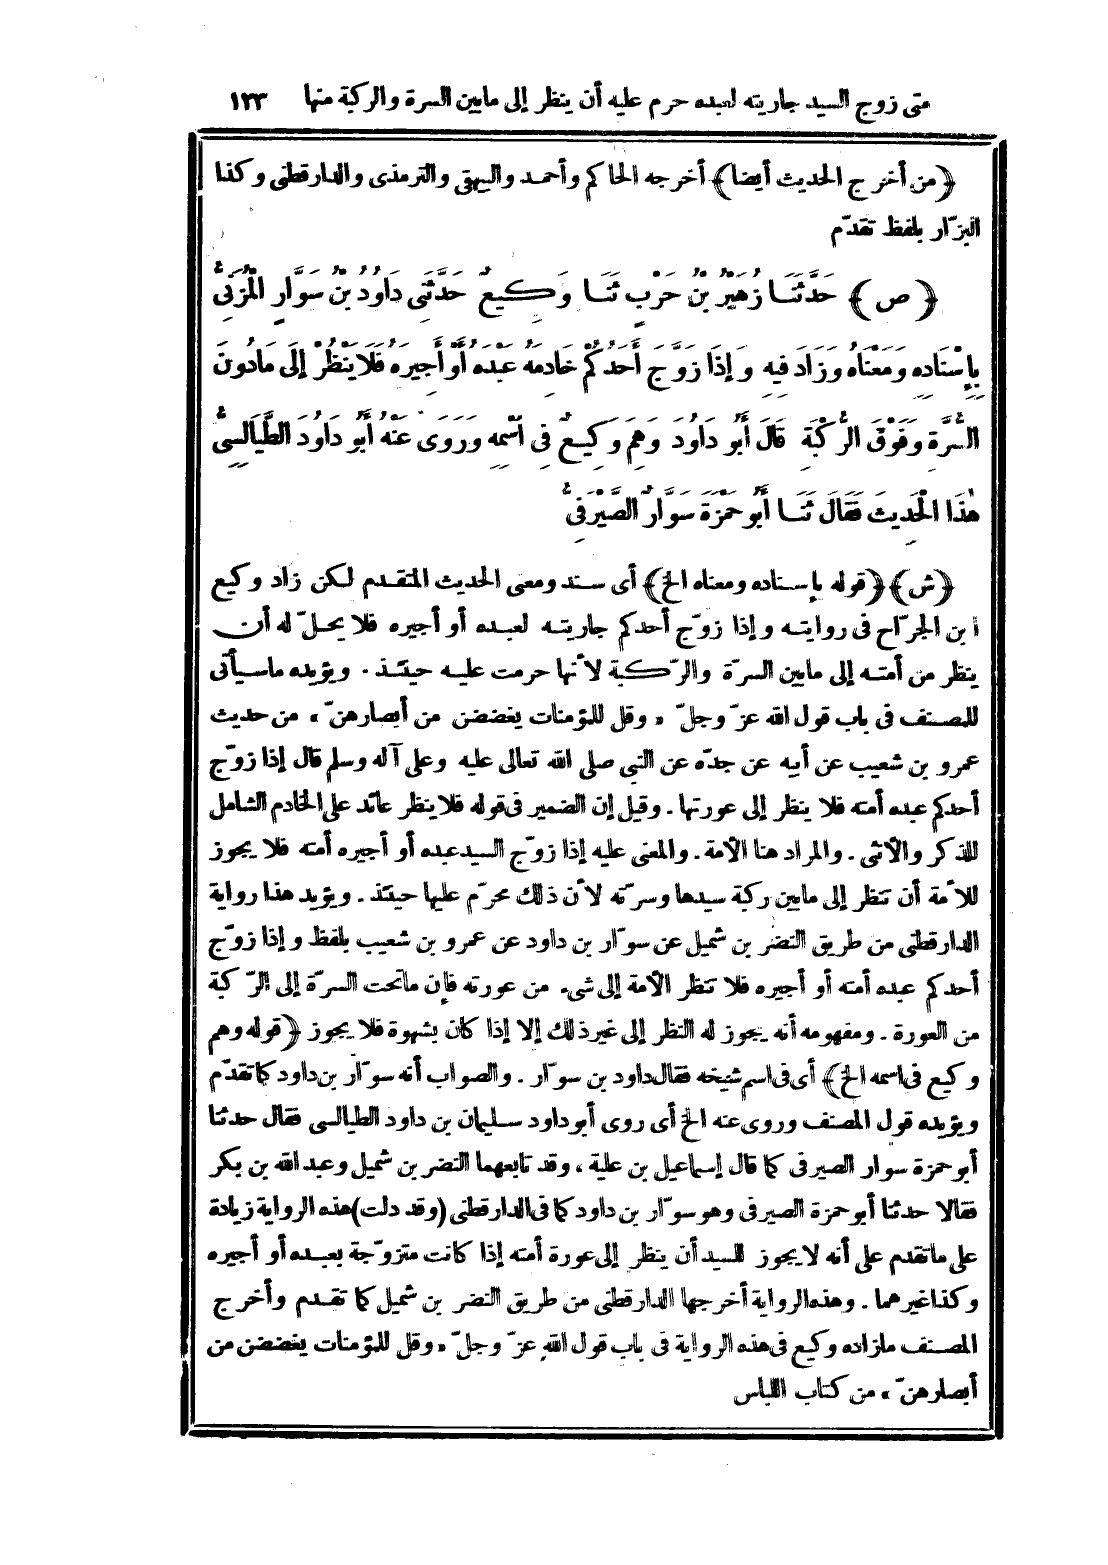 متى زوج السيد جاريته لعبده حرم عليه أن ينظر إلى مابين السرة والركبة منها ١٢٣
﴿من أخرج الحديث أيضا﴾ أخرجه الحاكم وأحمد والبيهقى والترمذى والدارقطنى وكذا
البزّار بلفظ تقدّم
﴿ص﴾ حَدَّثَنَا زُهَيْرُ بْنُ حَرْبٍ ثَنَا وَكِيعٌ حَدَّثَنِى دَاوُدُ بْنُ سَوَّارٍ الْمُزَنِىُّ
بِإِسْنَادِهِ وَمَعْنَاهُ وَزَادَ فِيهِ وَإِذَا زَوَّجَ أَحَدُكُمْ خَادِمَهُ عَبْدَهُ أَوْ أَجِيرَهُ فَلَا يَنْظُرْ إِلَى مَا دُونَ
السُّرَّةِ وَفَوْقَ الرُّكْبَةِ قَالَ أَبُو دَاوُدَ وَهِمَ وَكِيعٌ فِى اسْمِهِ وَرَوَى عَنْهُ أَبُو دَاوُدَ الطَّيَالِسِىُّ
هٰذَا الْحَدِيثَ فَقَالَ ثَنَا أَبُو حَمْزَةَ سَوَّارٌ الصَّيْرَفِىُّ
﴿ش﴾ ﴿قوله بإسناده ومعناه الخ﴾ أى سند ومعنى الحديث المتقدم لكن زاد وكيع
ابن الجرّاح فى روايته وإذا زوّج أحدكم جاريته لعبده أو أجيره فلا يحلّ له أن
ينظر من أمته إلى مابين السرّة والرّكبة لأنها حرمت عليه حينئذ. ويؤيده ماسيأتى
للمصنف فى باب قول الله عزّ وجلّ «وقل للمؤمنات يغضضن من أبصارهنّ» من حديث
عمرو بن شعيب عن أبيه عن جدّه عن النبى صلى الله تعالى عليه وعلى آله وسلم قال إذا زوّج
أحدكم عبده أمته فلا ينظر إلى عورتها. وقيل إن الضمير فى قوله فلا ينظر عائد على الخادم الشامل
للذكر والأنثى. والمراد هنا الأمة. والمعنى عليه إذا زوّج السيد عبده أو أجيره أمته فلا يجوز
للأمة أن تنظر إلى مابين ركبة سيدها وسرّته لأن ذلك محرّم عليها حينئذ. ويؤيد هذا رواية
الدارقطنى من طريق النضر بن شميل عن سوّار بن داود عن عمرو بن شعيب بلفظ وإذا زوّج
أحدكم عبده أمته أو أجيره فلا تنظر الأمة إلى شىء من عورته فإن ماتحت السرّة إلى الرّكبة
من العورة. ومفهومه أنه يجوز له النظر إلى غير ذلك إلا إذا كان بشهوة فلا يجوز ﴿قوله وهم
وكيع فى اسمه الخ﴾ أى فى اسم شيخه فقال داود بن سوّار. والصواب أنه سوّار بن داود كما تقدّم
ويؤيده قول المصنف وروى عنه الخ أى روى أبو داود سليمان بن داود الطيالسى فقال حدثنا
أبو حمزة سوار الصيرفى كما قال إسماعيل بن علية، وقد تابعهما النضر بن شميل وعبد الله بن بكر
فقالا حدثنا أبو حمزة الصيرفى وهو سوّار بن داود كما فى الدارقطنى (وقد دلت) هذه الرواية زيادة
على ماتقدم على أنه لايجوز للسيد أن ينظر إلى عورة أمته إذا كانت متزوّجة بعبده أو أجيره
وكذا غيرهما. وهذه الرواية أخرجها الدارقطنى من طريق النضر بن شميل كما تقدم وأخرج
المصنف مازاده وكيع فى هذه الرواية فى باب قول الله عزّ وجلّ «وقل للمؤمنات يغضضن من
أبصارهنّ» من كتاب اللباس